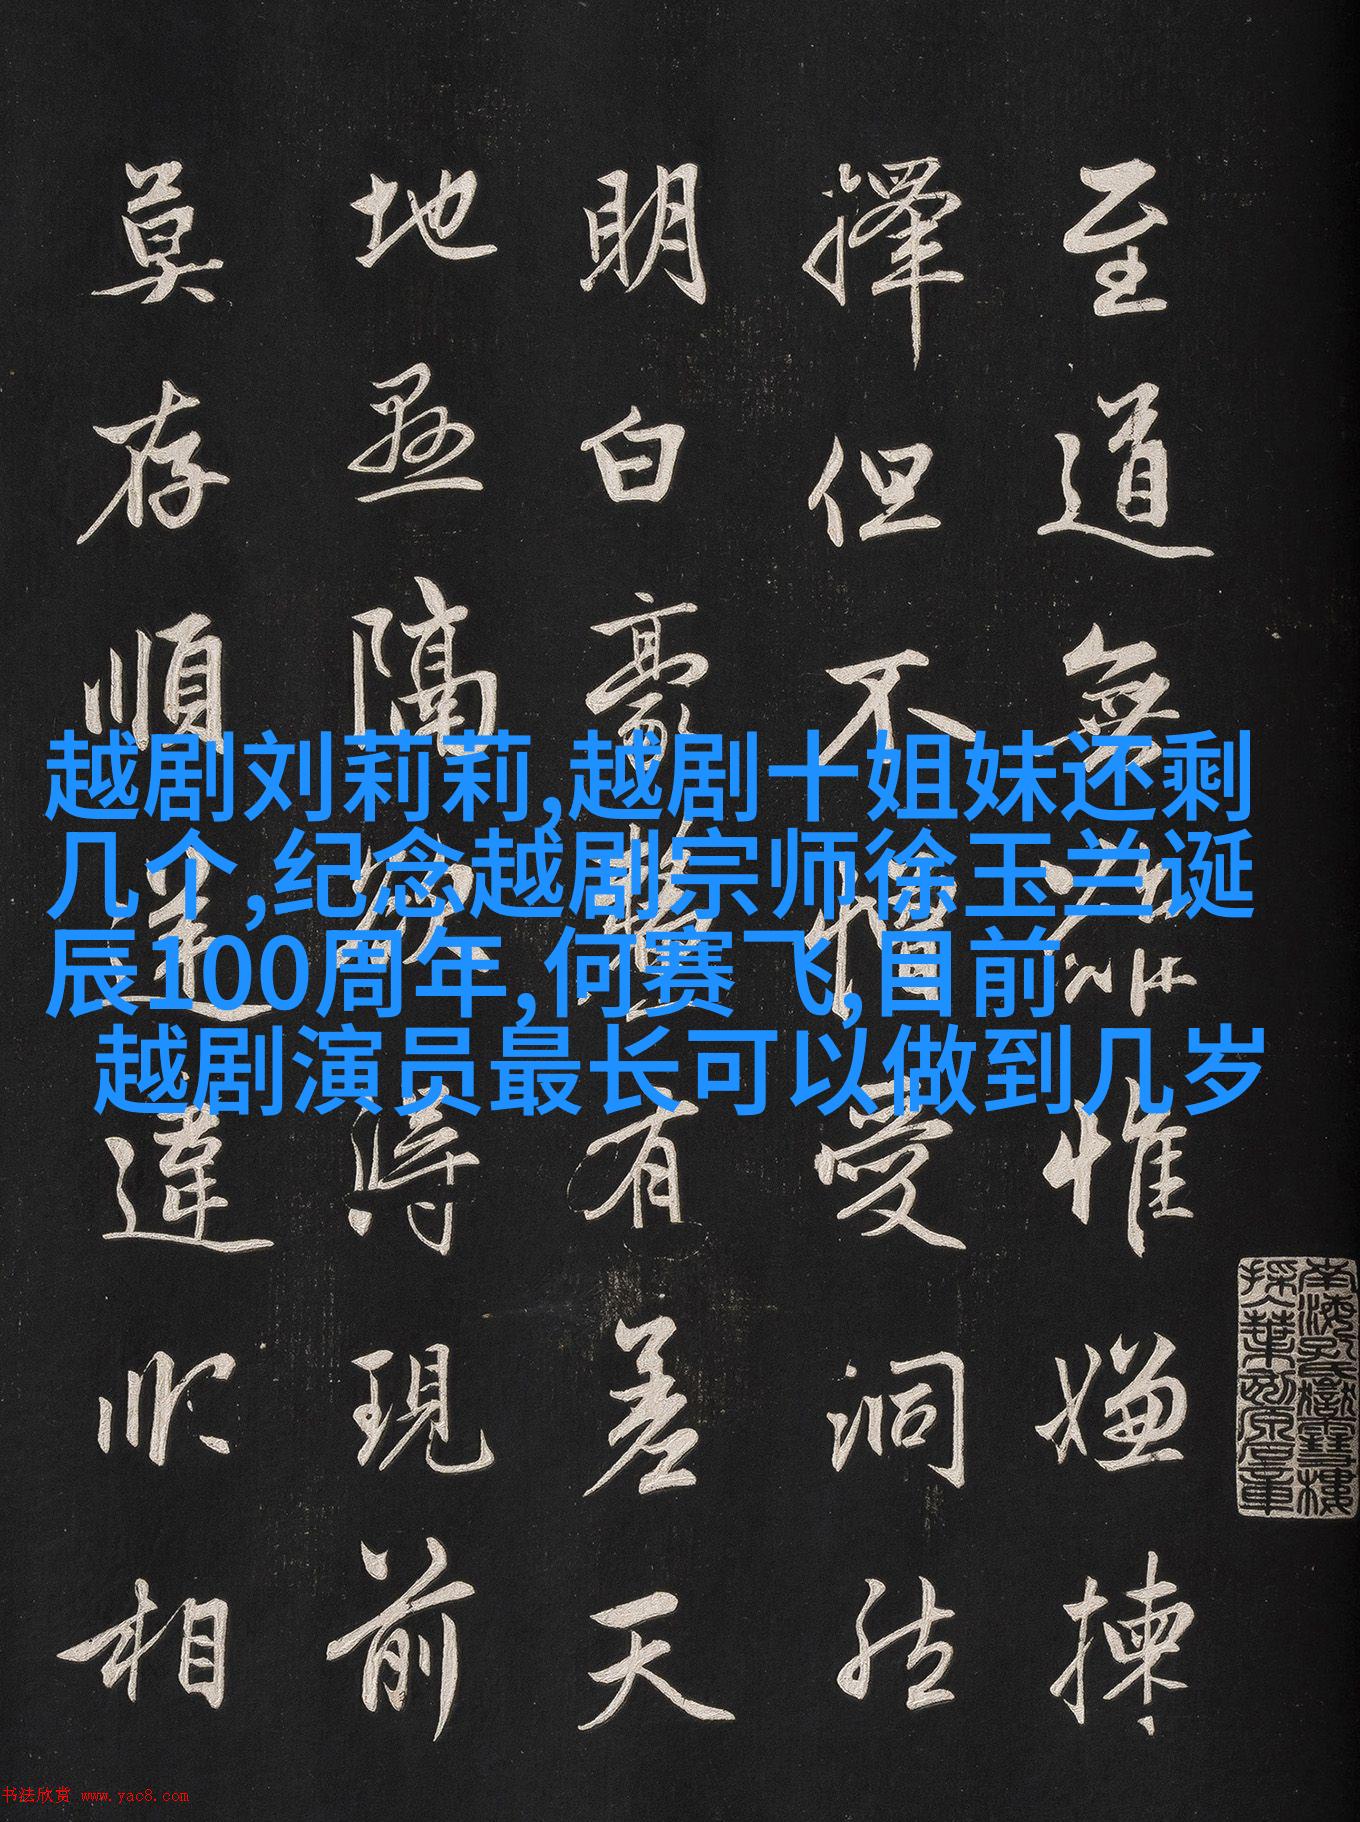 至道無難惟嫌揀
擇但不憎愛洞然
明白毫釐有差天
地懸隔欲得現前
莫存順逆違順相
越剧刘莉莉,越剧十姐妹还剩
几个,纪念越剧宗师徐玉兰诞
辰100周年,何赛飞,目前
越剧演员最长可以做到几岁
南海孔氏嶽雪樓
书法欣赏 www.yac8.com